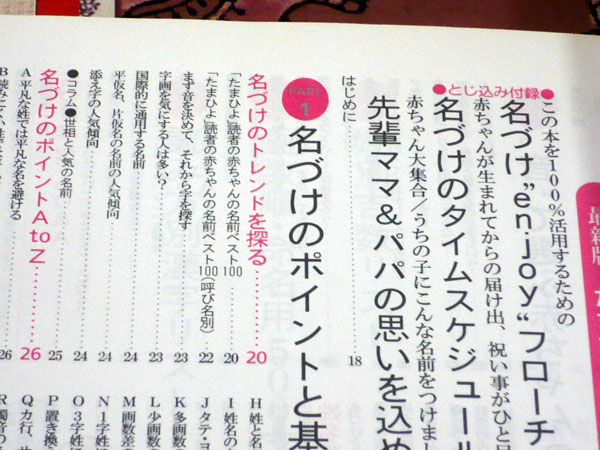 最新版
●とじ込み付録●
●この本を100%活用するための
名づけ"en:joy"フローチ
赤ちゃんが生まれてからの届け出、祝い事がひと目
名づけのタイムスケジュール
赤ちゃん大集合/うちの子にこんな名前をつけまし
先輩ママ&パパの思いを込め
はじめに………18
PART 1 名づけのポイントと基
名づけのトレンドを探る………20
「たまひよ」読者の赤ちゃんの名前ベスト100………20
「たまひよ」読者の赤ちゃんの名前ベスト100(呼び名別)………22
まず音を決めて、それから字を探す………23
字画を気にする人は多い?………23
国際的に通用する名前………24
平仮名、片仮名の名前の人気傾向………24
添え字の人気傾向………24
●コラム●世相と人気の名前………25
名づけのポイントA to Z………26
A 平凡な姓では平凡な名を避ける………26
H 姓と名
I 姓名の
J タテ・ヨ
K 多画数の
L 少画数の
M 画数差の
N 1字姓に
O 3字姓に
P 置き換
Q カ行、